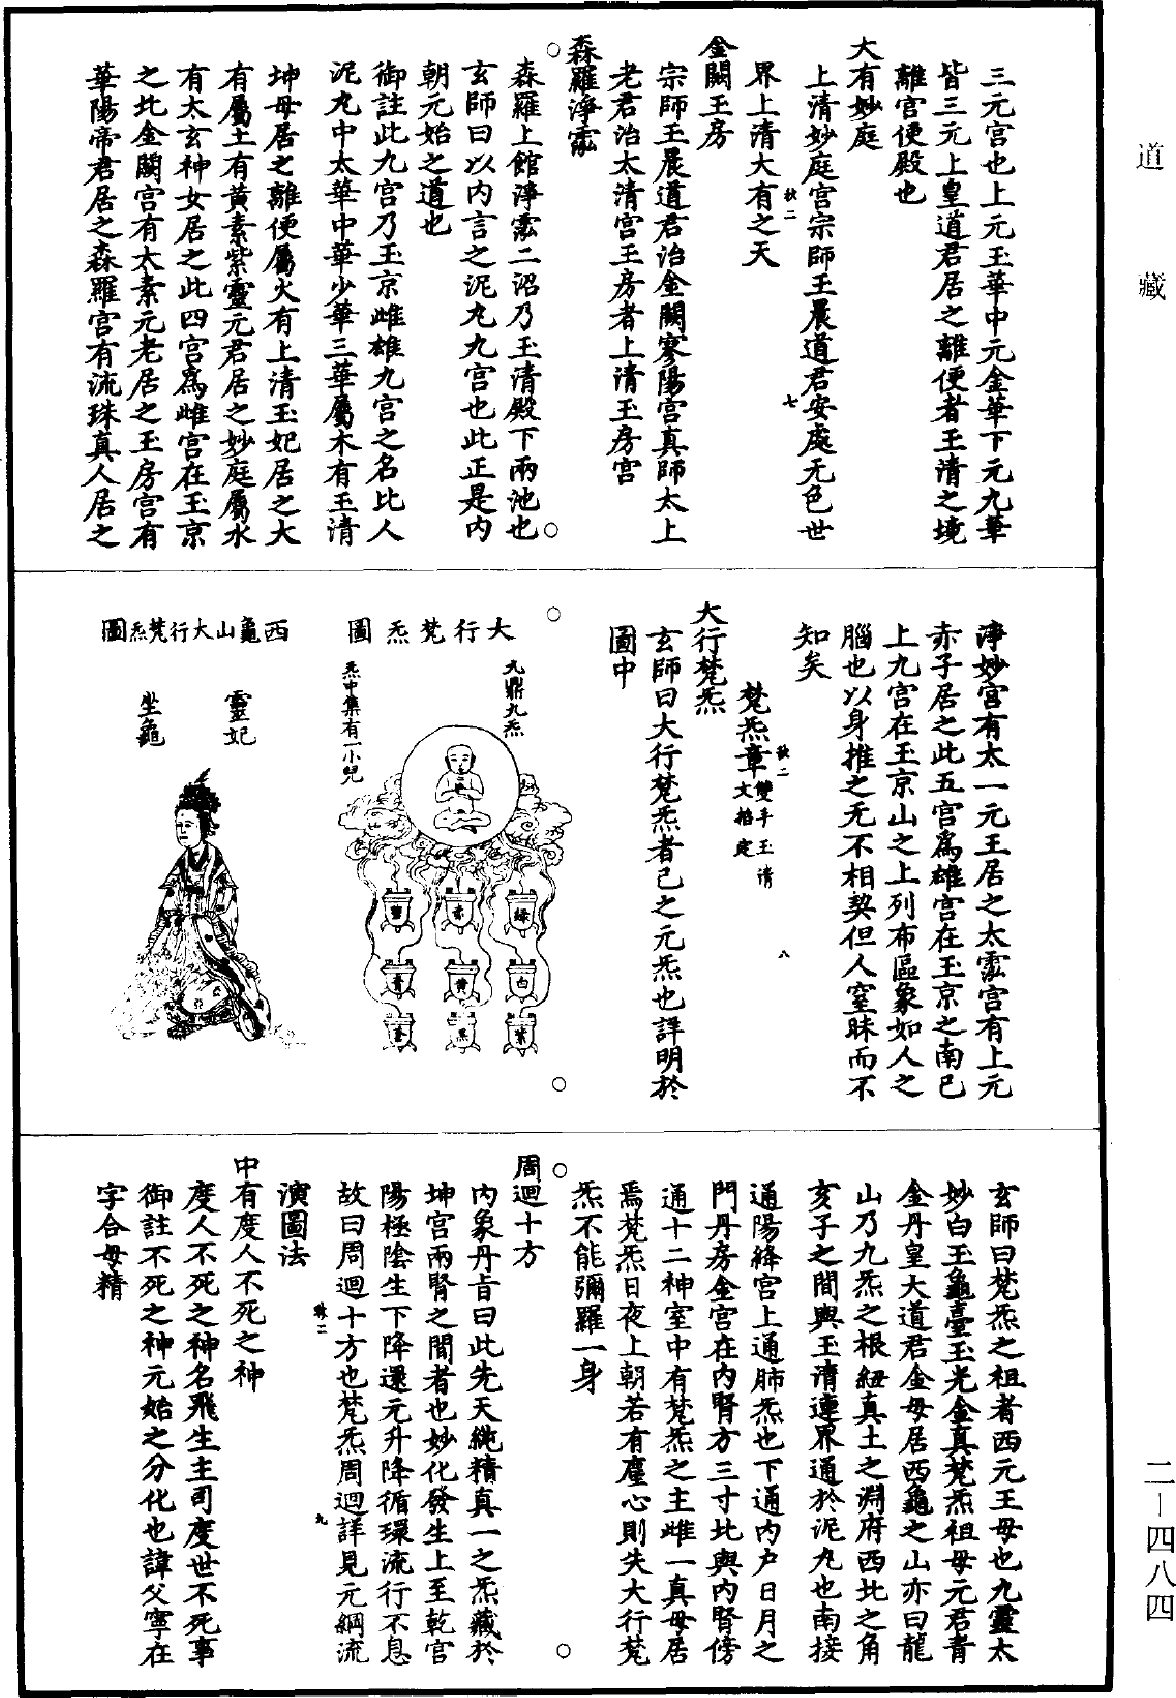 道藏
三元宫也上元玉華中元金華下元九華
皆三元上皇道君居之離便者玉清之境
離宫便殿也
大有妙庭
上清妙庭宫宗師玉晨道君安處无色世
界上清大有之天
金闕玉房
宗師玉晨道君治金闕寥陽宫真師太上
老君治太清宫玉房者上清玉房宫
森羅淨泓
森羅上館淨泓二沼乃玉清殿下兩池也
玄師曰以内言之泥丸九宫也此正是内
朝元始之道也
御註此九宫乃玉京雌雄九宫之名比人
泥丸中太華中華少華三華屬木有玉清
坤母居之離便屬火有上清玉妃居之大
有屬土有黄素紫靈元君居之妙庭屬水
有太玄神女居之此四宫爲雌宫在玉京
之北金闕宫有太素元老居之玉房宫有
華陽帝君居之森羅宫有流珠真人居之
七
淨妙宫有太一元王居之太霐宫有上元
赤子居之此五宫爲雄宫在玉京之南已
上九宫在玉京山之上列布區象如人之
腦也以身推之无不相契但人窒昧而不
知矣
梵炁章雙手玉清
文掐定
八
大行梵炁
玄師曰大行梵炁者已之元炁也詳明於
圖中
大行梵炁圖
九鼎九炁
炁中集有一小兒
綠
素
白
黄
青
紫
黑
蒼
西龜山大行梵炁圖
靈妃
坐龜
玄師曰梵炁之祖者西元王母也九靈太
妙白玉龜臺玉光金真梵炁祖母元君青
金丹皇大道君金母居西龜之山亦曰龍
山乃九炁之根紐真土之淵府西北之角
亥子之間與玉清連界通於泥丸也南接
通陽絳宫上通肺炁也下通内户日月之
門丹房金宫在内腎方三寸北與内腎傍
通十二神室中有梵炁之主雌一真母居
焉梵炁日夜上朝若有塵心則失大行梵
炁不能彌羅一身
周迴十方
内象丹旨曰此先天純精真一之炁藏於
坤宫兩腎之間者也妙化發生上至乾宫
陽極陰生下降還元升降循環流行不息
故曰周迴十方也梵炁周迴詳見元綱流
演圖法
九
中有度人不死之神
度人不死之神名飛生主司度世不死事
御註不死之神元始之分化也諱父寧在
字合母精
二—四八四